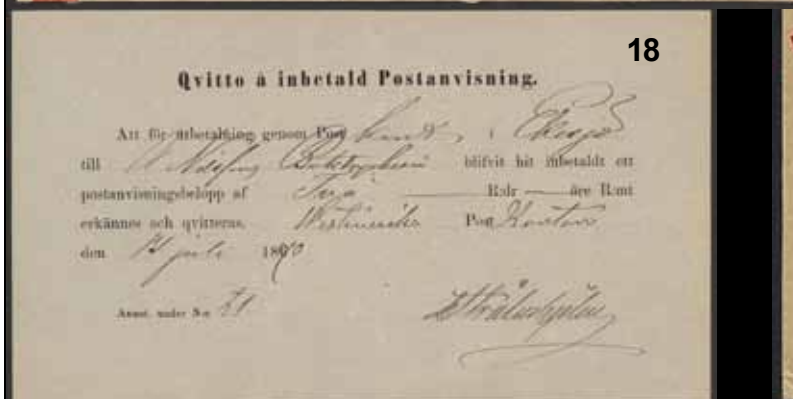 18
Qvitto å inbetald Postanvisning.
Att för utbetalning genom Post Kont. i Eksjö
till Boktryckeri blifvit hit inbetaldt ett
postanvisningsbelopp af Tre R:dr — öre R:mt
erkännes och qvitteras. Westerviks Post Kontor
den juli 1870
Annot. under N:o 21